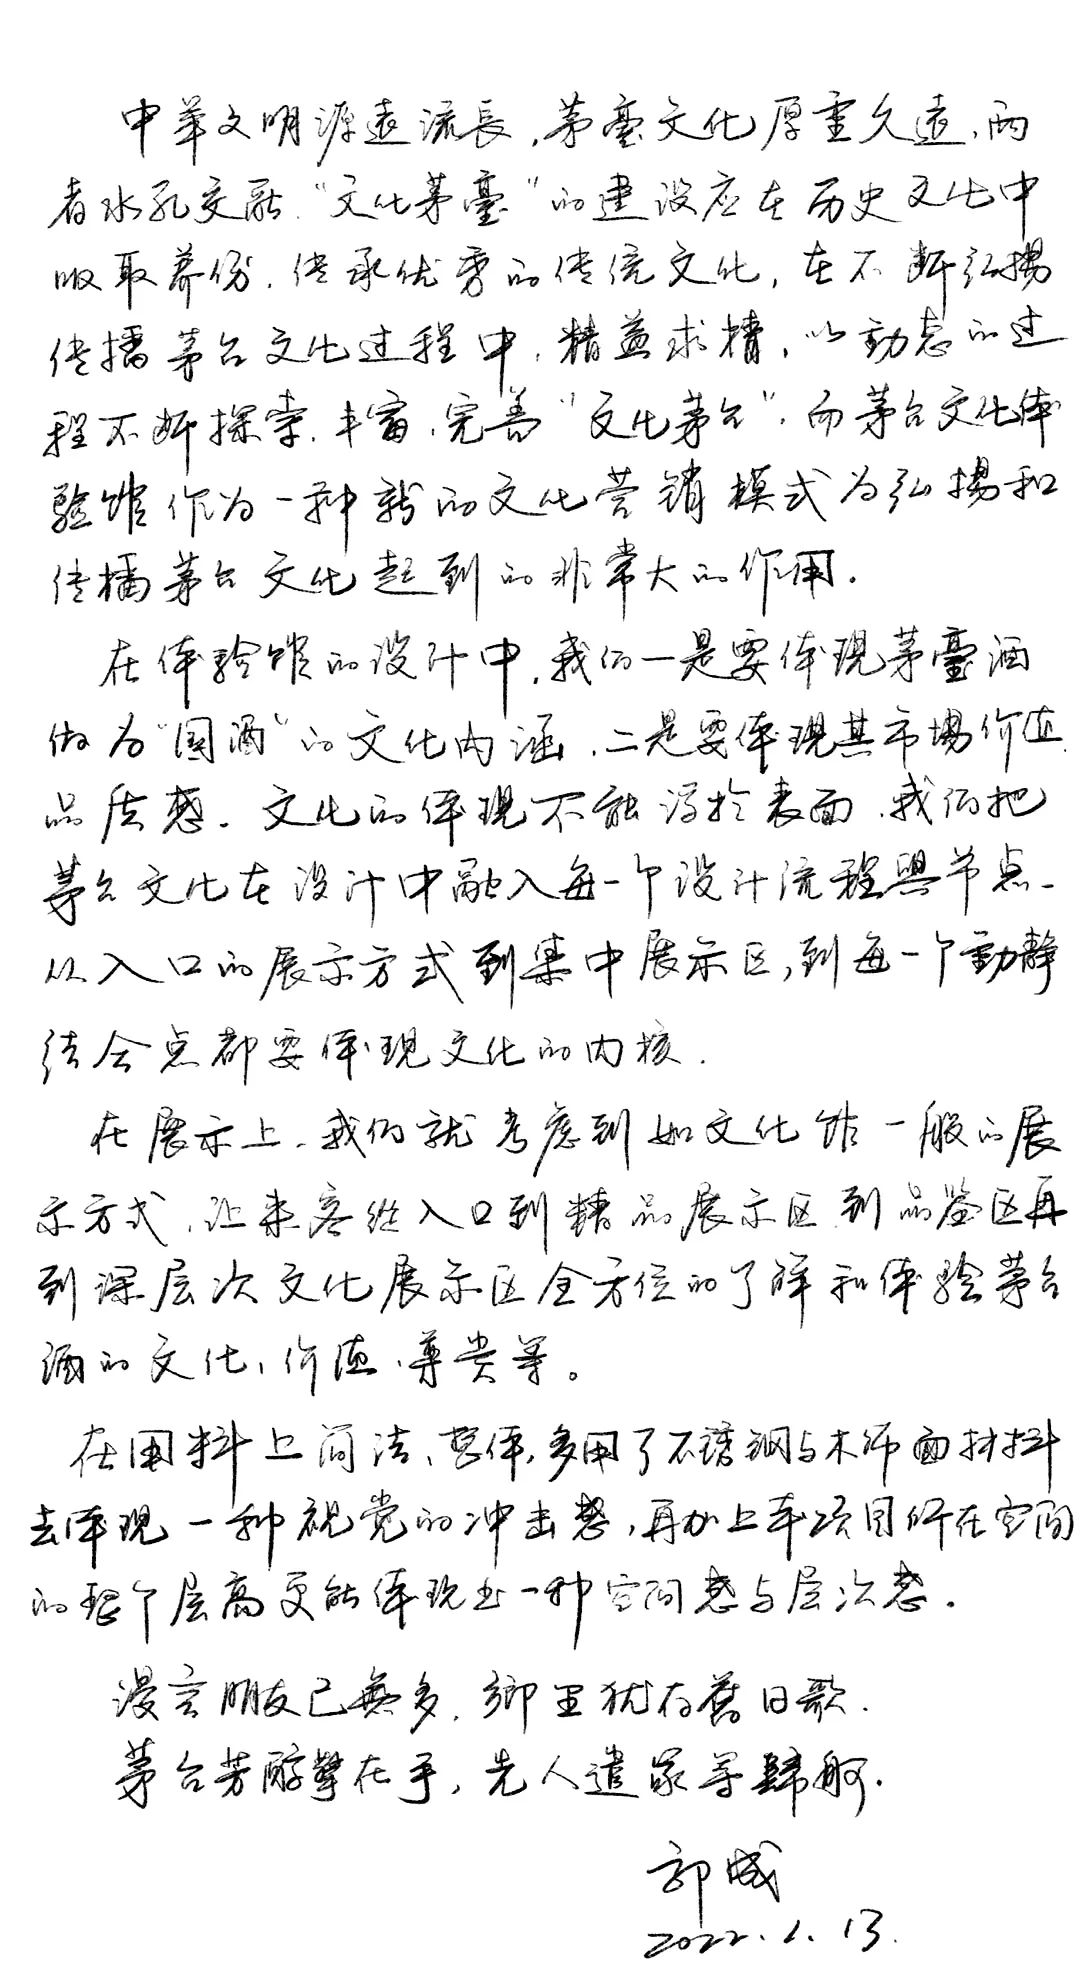 中华文明源遠流長,茅臺文化厚重久遠,两
者水乳交融."文化茅臺"的建设应在历史文化中
吸取养份.传承优秀的传统文化,在不断弘揚
传播茅台文化过程中,精益求精,以動态的过
程不断探索、丰富、完善"文化茅台".而茅台文化体
验馆作为一种新的文化营销模式为弘揚和
传播茅台文化起到的非常大的作用.
在体验馆的设计中,我们一是要体現茅臺酒
做为"国酒"的文化内涵,二是要体現其市場价值
品质感.文化的体現不能浮於表面,我们把
茅台文化在设计中融入每一个设计流程與节点.
从入口的展示方式到集中展示区,到每一个動静
结合点都要体現文化的内核.
在展示上,我们就考虑到如文化馆一般的展
示方式,让来客从入口到精品展示区到品鉴区再
到深层次文化展示区全方位的了解和体验茅台
酒的文化、价值、尊贵等。
在用料上简洁、整体,多用了不锈钢与木饰面材料
去体現一种視觉的冲击感,再加上本项目所在空间
的整个层高更能体現出一种空间感与层次感.
漫言朋友已無多,鄉里犹存舊日歌.
茅台芳醇擎在手,先人遣家寻歸舸.
郭成
2022.1.13.